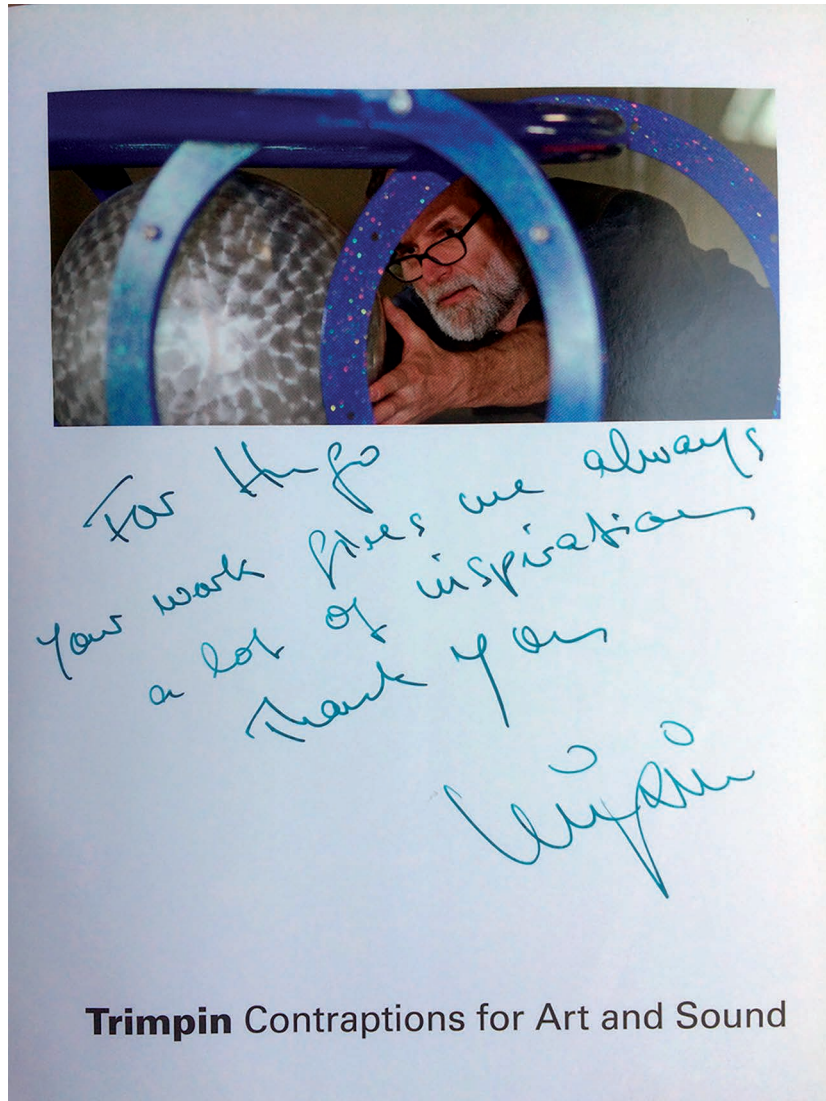 For Hugo
Your work gives me always
a lot of inspirations
Thank you
Trimpin
Trimpin Contraptions for Art and Sound